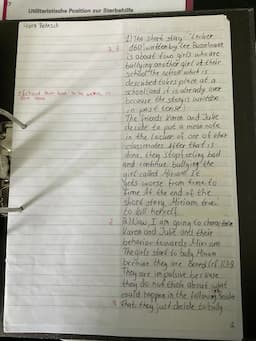 Utilitaristische Position zur Sterbehilfe
1) The short story "Locker
160" written by Lee Buzelman
is about two girls who are
bullying another girl at their
school. The action what is
described takes place at a
school and it is already over
because the story is written
in past tense.
The friends Karen and Julie
decide to put a mean note
in the locker of one of their
classmates. After that is
done, they stop feeling bad
and continue bullying the
girl called Miriam. It
gets worse from time to
time. At the end of the
short story Miriam tries
to kill herself.
2) Now I am going to characterize
Karen and Julie and their
behavior towards Miriam.
The girls start to bully Miriam
because they are bored
They are impulsive because
they do not think about what
could happen in the following
that they just decide to bully